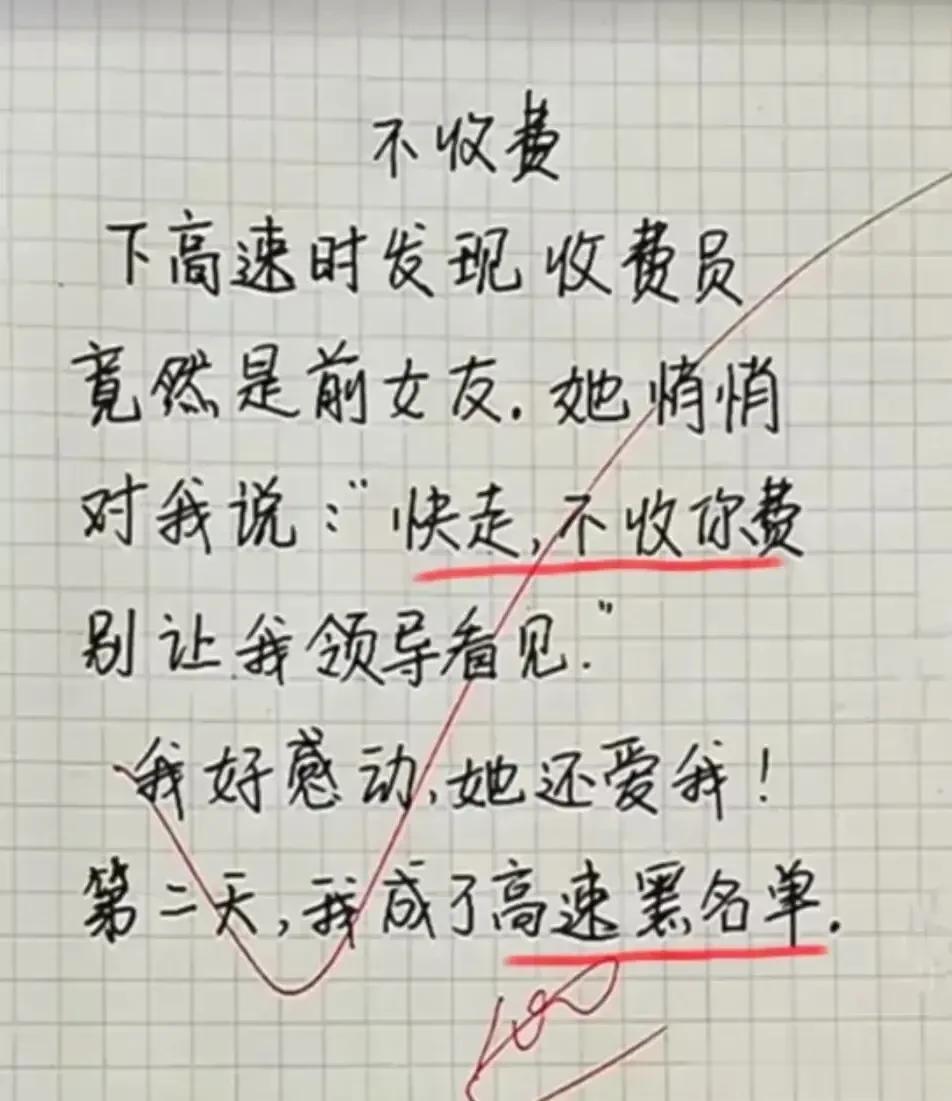 不收费
下高速时发现收费员
竟然是前女友.她悄悄
对我说:"快走,不收你费
别让我领导看见."
我好感动,她还爱我!
第二天,我成了高速黑名单.
100